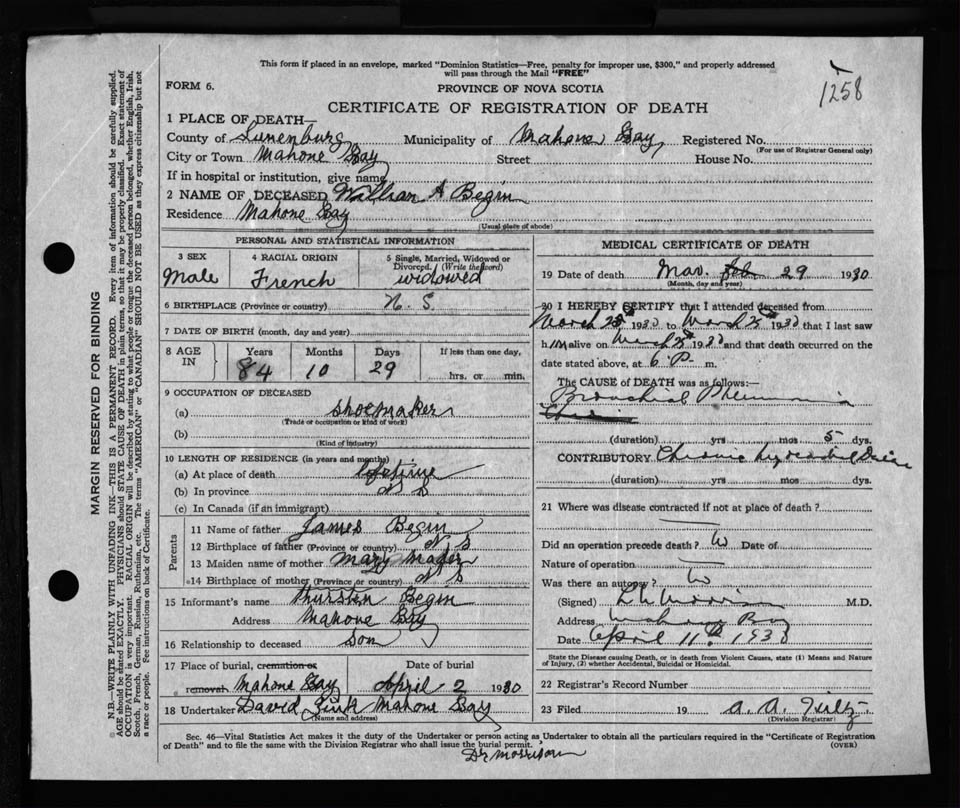 This form if placed in an envelope, marked "Dominion Statistics—Free, penalty for improper use, $300," and properly addressed
will pass through the Mail "FREE"
1258
FORM 6.
PROVINCE OF NOVA SCOTIA
CERTIFICATE OF REGISTRATION OF DEATH
1 PLACE OF DEATH—
County of Lunenburg Municipality of Mahone Bay Registered No.
(For use of Registrar General only)
City or Town Mahone Bay Street House No.
If in hospital or institution, give name
2 NAME OF DECEASED William A Begin
Residence Mahone Bay
(Usual place of abode)
PERSONAL AND STATISTICAL INFORMATION
3 SEX 4 RACIAL ORIGIN 5 Single, Married, Widowed or
Divorced. (Write the word)
Male French widowed
6 BIRTHPLACE (Province or country) N. S.
7 DATE OF BIRTH (month, day and year)
8 AGE IN Years Months Days If less than one day,
84 10 29 hrs. or min.
9 OCCUPATION OF DECEASED
(a) Shoemaker
(Trade or occupation or kind of work)
(b)
(Kind of industry)
10 LENGTH OF RESIDENCE (in years and months)
(a) At place of death lifetime
(b) In province N S
(c) In Canada (if an immigrant)
Parents
11 Name of father James Begin
12 Birthplace of father (Province or country) N S
13 Maiden name of mother Mary Mader
14 Birthplace of mother (Province or country) N S
15 Informant's name Thursten Begin
Address Mahone Bay
16 Relationship to deceased Son
17 Place of burial, cremation or Date of burial
removal Mahone Bay April 2 1930
18 Undertaker David Zink Mahone Bay
(Name and address)
MEDICAL CERTIFICATE OF DEATH
19 Date of death Mar. Feb 29 1930
(Month, day and year)
20 I HEREBY CERTIFY that I attended deceased from
March 1930 to March 1930 that I last saw
him alive on March 1930 and that death occurred on the
date stated above, at 6 P. m.
The CAUSE of DEATH was as follows:—
Bronchial Pneumonia
(duration) yrs mos 5 dys.
CONTRIBUTORY Chronic Myocardial Disease
(duration) yrs. mos. dys.
21 Where was disease contracted if not at place of death?
Did an operation precede death? No Date of
Nature of operation
Was there an autopsy? No
(Signed) Morrison M.D.
Address Mahone Bay
Date April 11th 1930
State the Disease causing Death, or in death from Violent Causes, state (1) Means and Nature
of Injury, (2) whether Accidental, Suicidal or Homicidal.
22 Registrar's Record Number
23 Filed 19 A. A.
(Division Registrar)
Sec. 46—Vital Statistics Act makes it the duty of the Undertaker or person acting as Undertaker to obtain all the particulars required in the "Certificate of Registration
of Death" and to file the same with the Division Registrar who shall issue the burial permit.
(OVER)
Dr Morrison
MARGIN RESERVED FOR BINDING
N.B.—WRITE PLAINLY WITH UNFADING INK—THIS IS A PERMANENT RECORD. Every item of information should be carefully supplied.
AGE should be stated EXACTLY. PHYSICIANS should STATE CAUSE OF DEATH in plain terms, so that it may be properly classified. Exact statement of
OCCUPATION is very important. RACIAL ORIGIN will be described by stating to what people or tongue the deceased person belonged, whether English, Irish,
Scotch, French, German, Russian, Ruthenian, etc. The terms "AMERICAN" or "CANADIAN" SHOULD NOT BE USED as they express citizenship but not
a race or people. See instructions on back of Certificate.